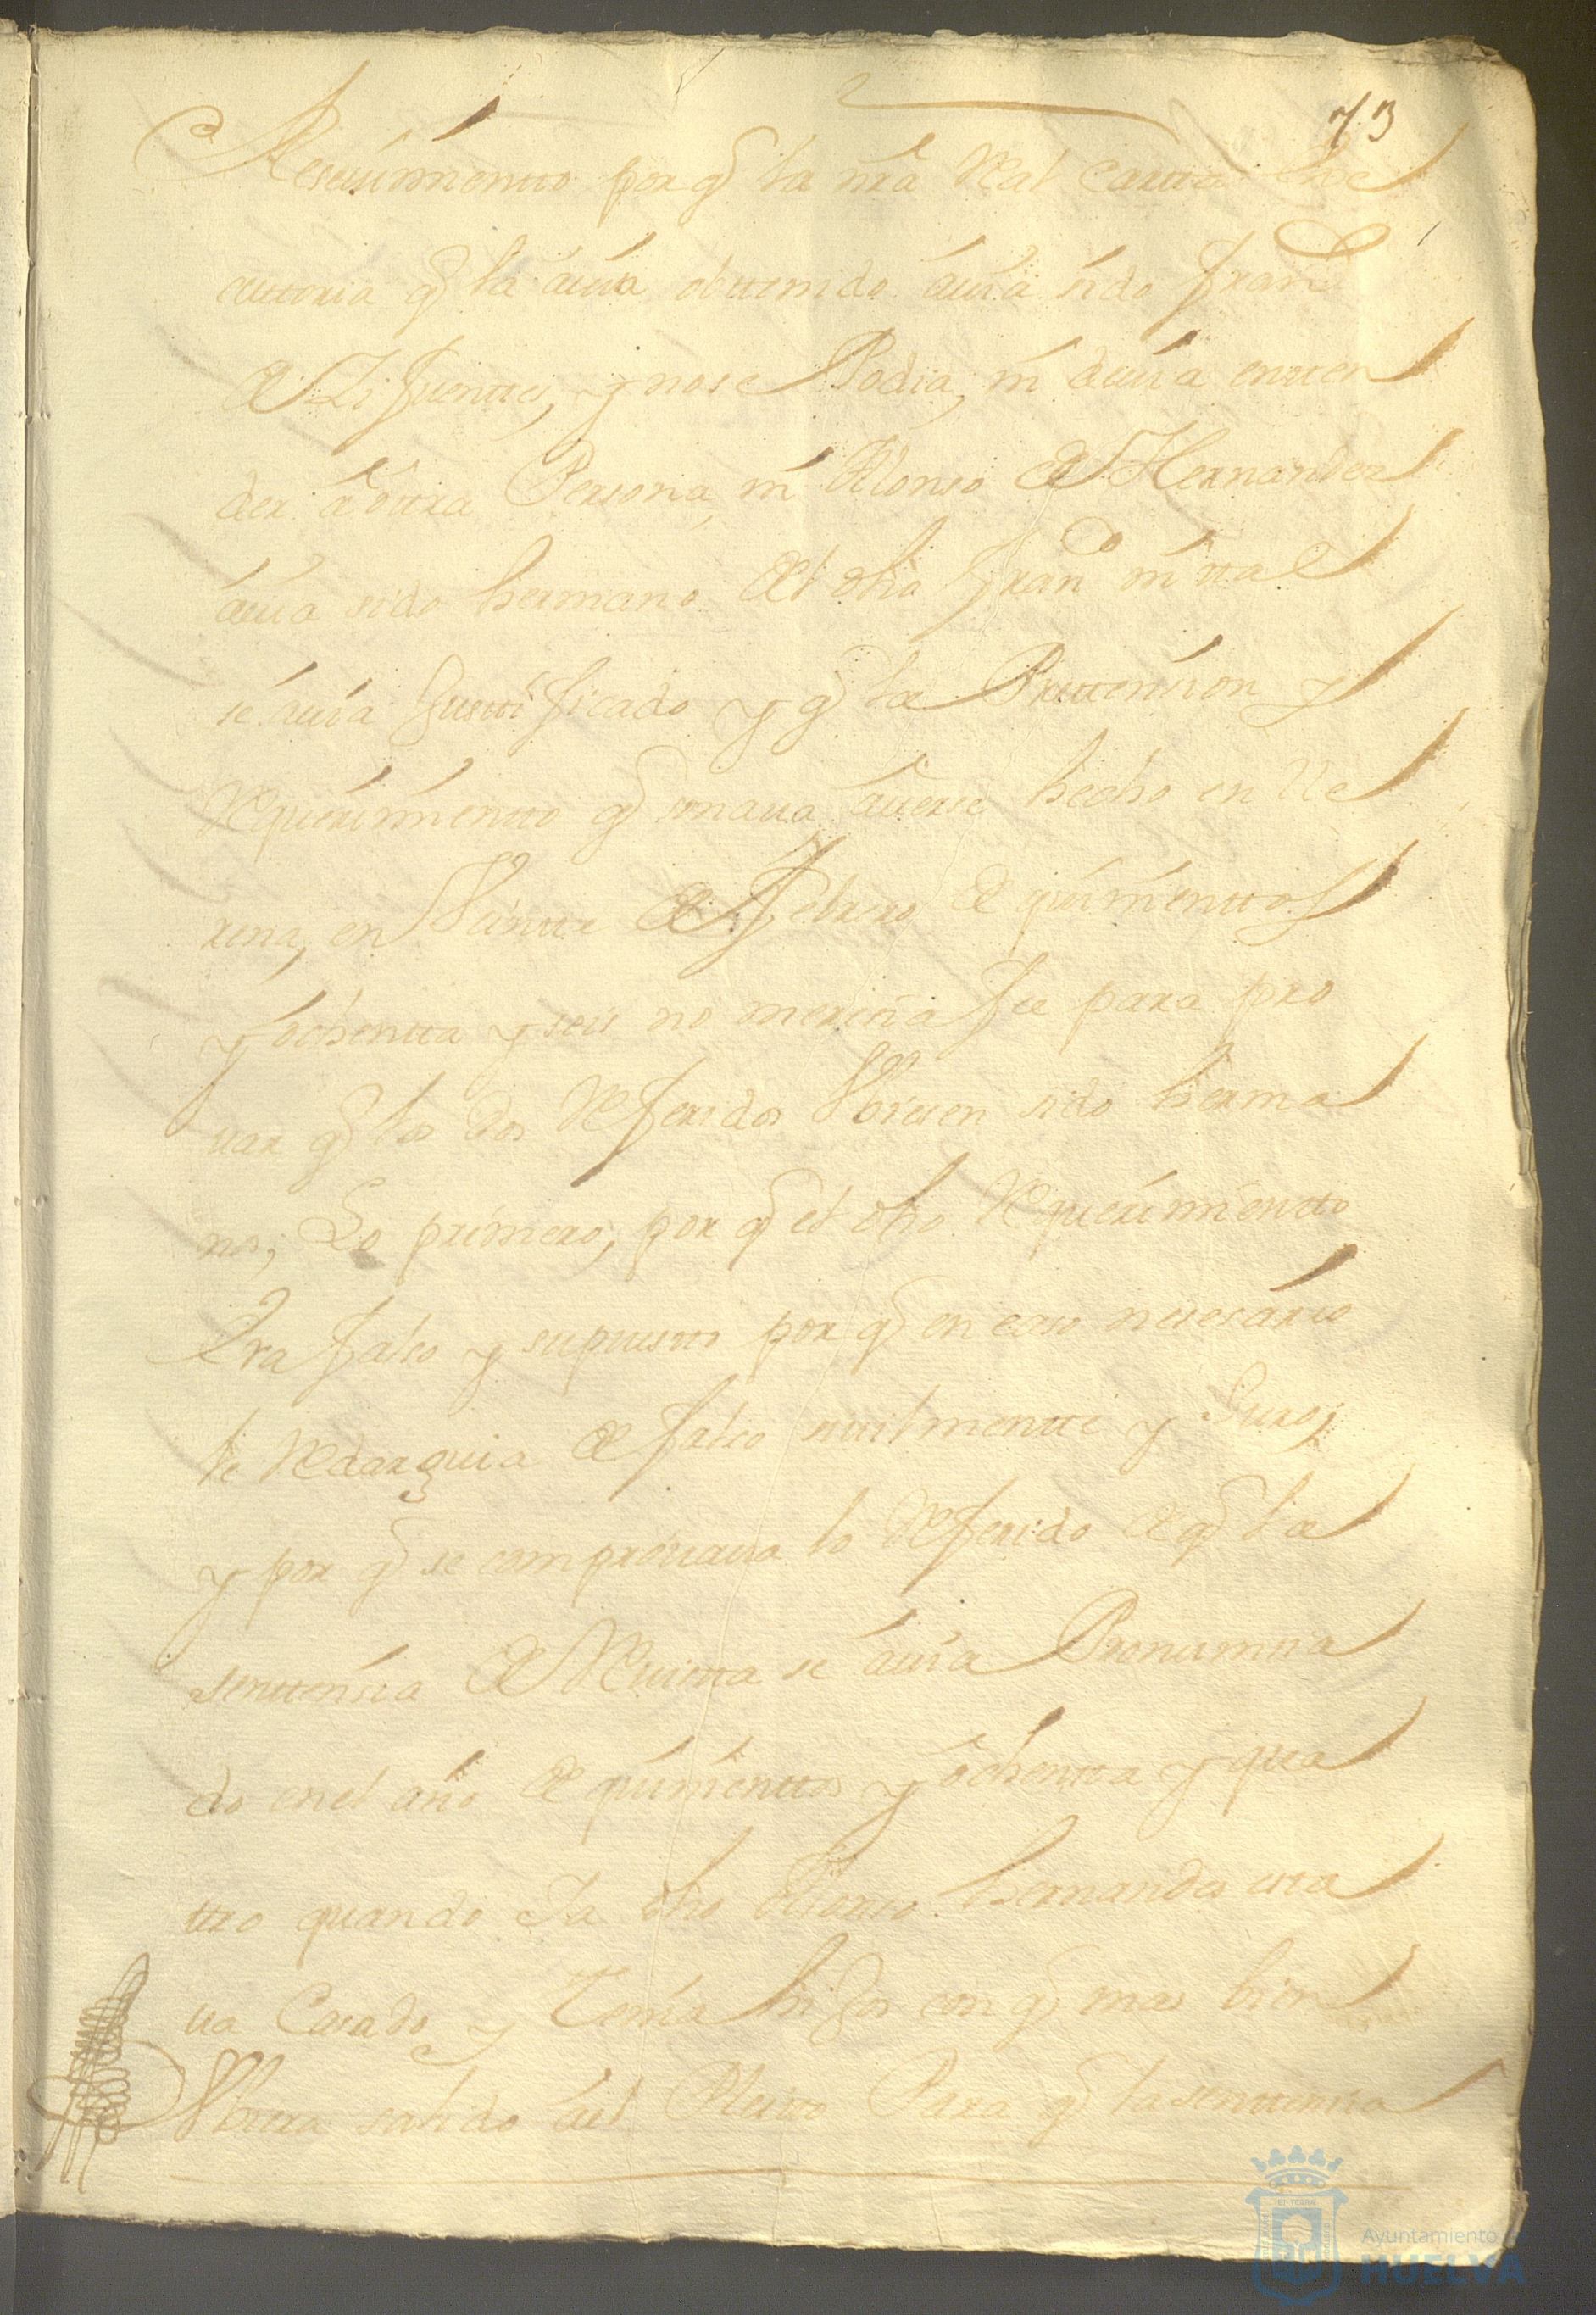 73
Resevimientto por q̃ la nrã Real cartta Exe
cuttoria q̃ la auia obttenido auia sido Franco
de Zifuenttes, y nose Podia, ni deuia entten
der a ottra Persona, ni Alonso de Hernandez
auia sido hermano del dho Franco ni ttal
se auia Justtificado y q̃ la Prettension y
Requerimientto q̃ sonaua auerse hecho en lle
rena, en Veintte de Febrero de quinienttos
y ochentta y seis no merecia fee para pro
uar q̃ los dos Referidos Vbiesen sido herma
nos, Lo primero, por q̃ el dho Requerimientto
Era falso y supuestto por q̃ en caso nesesario
le Redarguia de falso siuilmentte y Juro,
y por q̃ se comprouaua lo Referido de q̃ la
senttensia de Reuistta se auia Pronunsia
do en el año de quinienttos y ochentta y qua
ttro quando Ya dho Alonso hernandes estta
ua Casado, y Tenia hijos con q̃ mas bien
Vbiera salido ael Pleitto Para q̃ la senttensia
Ayuntamiento de
HUELVA